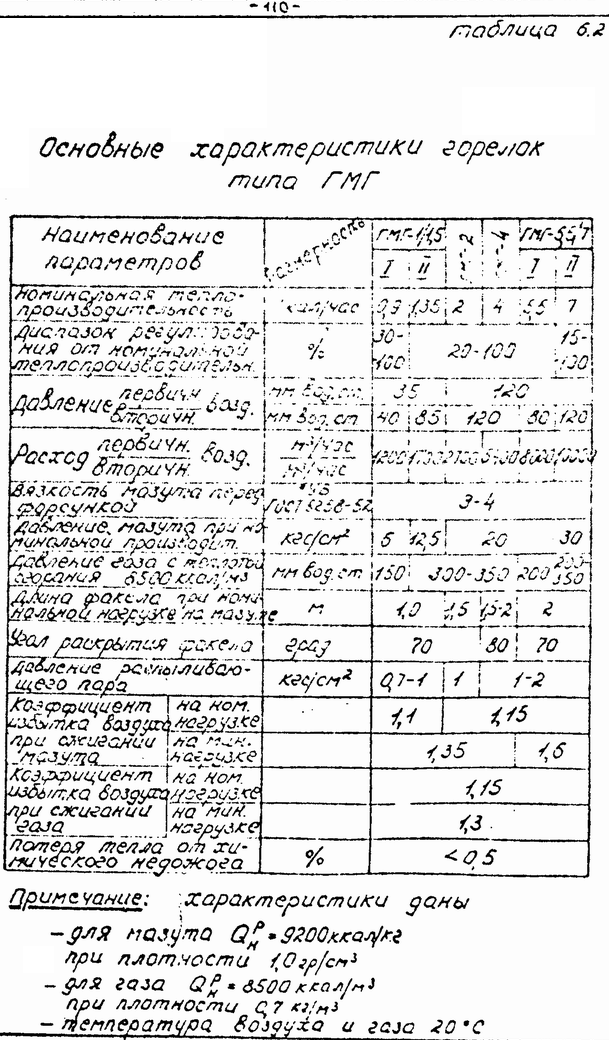 -110-
таблица 6.2
Основные характеристики горелок
типа ГМГ
Наименование параметров Размерность ГМГ-1,15 -2 -4 ГМГ-5,5/7
I II I II
номинальная тепло-
производительность кал/час 0,9 1,35 2 4 5,5 7
диапазон регулирова-
ния от номинальной
теплопроизводительн. % 30-100 20-100 15-100
Давление первичн. возд. мм вод.ст. 35 120
вторичн. мм вод.ст 40 85 120 80 120
Расход первичн. возд. м³/час
вторичн. м³/час 1200
вязкость мазута перед
форсункой °УВ ГОСТ 6258-52 3-4
давление мазута при но
минальной производит. кгс/см² 5 12,5 20 30
давление газа с теплотой
сгорания 8500 ккал/м³ мм вод.ст 150 300-350 200 200-350
длина факела при номи
нальной нагрузке на мазуте м 1,0 1,5 1,5-2 2
Угол раскрытия факела град 70 80 70
давление распыливаю-
щего пара кгс/см² 0,7-1 1 1-2
коэффициент на ном.
избытка воздуха нагрузке 1,1 1,15
при сжигании на мин.
мазута нагрузке 1,35 1,6
коэффициент на ном.
избытка воздуха нагрузке 1,15
при сжигании на мин.
газа нагрузке 1,3
потеря тепла от хи-
мического недожога % <0,5
Примечание: характеристики даны
- для мазута Qᴾн = 9200ккал/кг
при плотности 1,0гр/см³
- для газа Qᴾн = 8500 ккал/м³
при плотности 0,7 кг/м³
- температура воздуха и газа 20°С